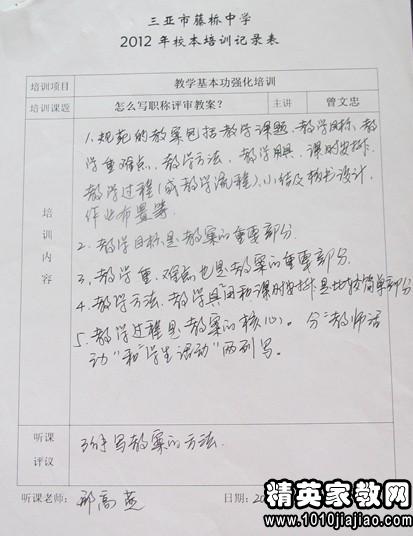 三亚市藤桥中学
2012 年校本培训记录表
培训项目 教学基本功强化培训
培训课题 怎么写职称评审教案? 主讲 曾文忠
培训内容
1. 规范的教案包括教学课题、教学目标、教
学重难点、教学方法、教学用具、课时安排、
教学过程(或教学流程)、小结及板书设计、
作业布置等.
2. 教学目标是教案的重要部分.
3. 教学重、难点也是教案的重要部分.
4. 教学方法、教学用具和课时安排是比较简单部分
5. 教学过程是教案的核心。分"教师活
动"和"学生活动"两列写。
听课评议 写教案的方法.
听课老师: 邢高 日期: 20
精英家教网
www.1010jiajiao.com